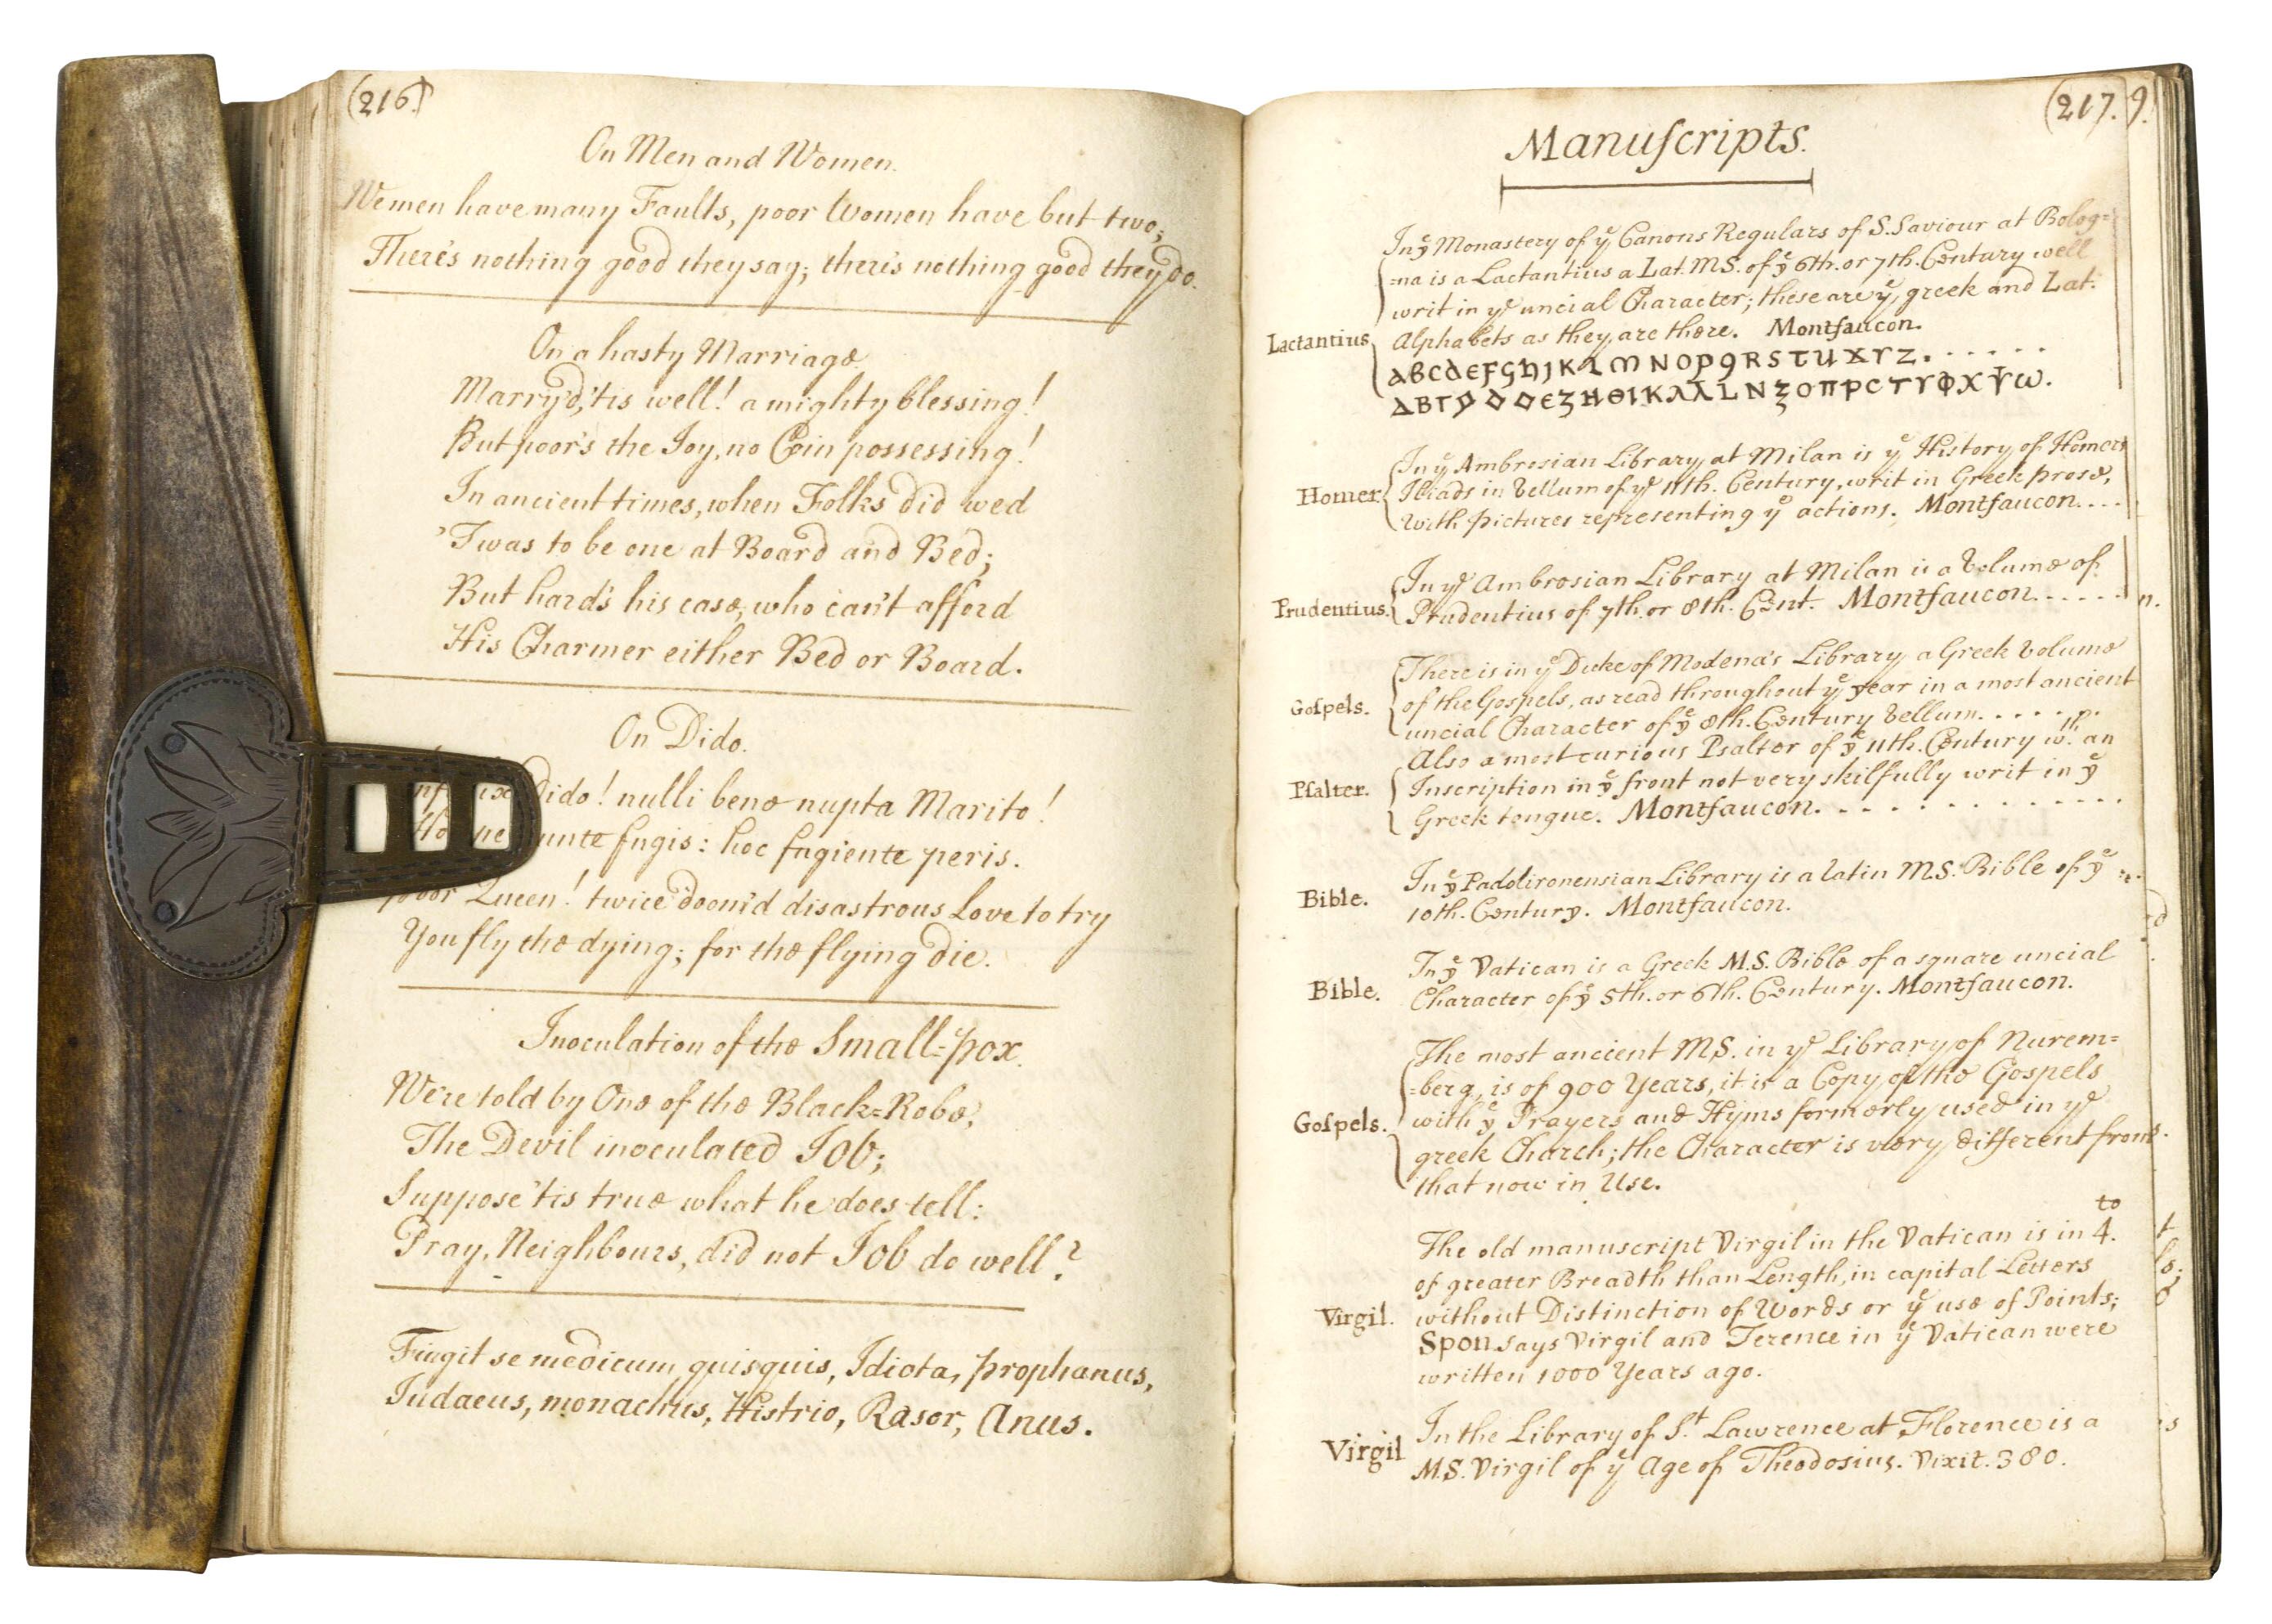 (216.)
On Men and Women.
Wemen have many Faults, poor Women have but two;
There's nothing good they say; there's nothing good they do.
On a hasty Marriage.
Marry'd,'tis well! a mighty blessing!
But poor's the Joy, no Coin possessing!
In ancient times, when Folks did wed
'Twas to be one at Board and Bed;
But hard's his case, who can't afford
His Charmer either Bed or Board.
On Dido.
Dido! nulli bene nupta Marito!
fugis: hoc fugiente peris.
Poor Queen! twice doom'd disastrous Love to try
You fly the dying; for the flying die.
Inoculation of the Small-pox.
We're told by One of the Black=Robe,
The Devil inoculated Job;
Suppose 'tis true what he does tell:
Pray, Neighbours, did not Job do well?
Fingit se medicum, quisquis, Idiota, prophanus,
Iudaeus, monachus, Histrio, Rasor, Anus.
(217.
9.
Manuſcripts.
In yͤ Monastery of yͤ Canons Regulars of S. Saviour at Bolog=
=na is a Lactantius a Lat. MS. of yͤ 6th. or 7th. Century well
writ in yͤ uncial Character; these are yͤ greek and Lat.
Lactantius Alphabets as they are there. Montfaucon.
ABCDEFGHJKLMNOPQRSTUXYZ.......
ΔΒΓ
ΕΖΗΘΙΚΛ
ΝΞΟΠΡCΤΥΦΧΨω.
In yͤ Ambrosian Library at Milan is yͤ History of Homers
Homer. Iliads in Vellum of yͤ 11th. Century, writ in Greek prose,
with pictures representing yͤ actions. Montfaucon....
In yͤ Ambrosian Library at Milan is a Volume of
Prudentius. Prudentius of 7th. or 8th. Cent. Montfaucon......
n.
There is in yͤ Duke of Modena's Library a Greek Volume
Goſpels. of the Gospels, as read throughout yͤ year in a most ancient
uncial Character of yͤ 8th. Century Vellum.....
Also a most curious Psalter of yͤ 11th. Century wth. an
Pſalter. Inscription in yͤ front not very skilfully writ in yͤ
Greek tongue. Montfaucon.............
In yͤ Padolironensian Library is a latin M.S. Bible of yͤ
Bible. 10th. Century. Montfaucon.
In yͤ Vatican is a Greek M.S. Bible of a square uncial
Bible. Character of yͤ 5th. or 6th. Century. Montfaucon.
The most ancient MS. in yͤ Library of Nurem=
=berg, is of 900 Years, it is a Copy of the Gospels
Goſpels. with yͤ Prayers and Hyms formerly used in yͤ
greek Church; the Character is very different from
that now in Use.
The old manuscript Virgil in the Vatican is in 4.to
of greater Breadth than Length, in capital Letters
Virgil. without Distinction of Words or yͤ use of Points;
Spon says Virgil and Terence in yͤ Vatican were
written 1000 Years ago.
In the Library of S.t Lawrence at Florence is a
Virgil M.S. Virgil of yͤ Age of Theodosius. Vixit. 380.